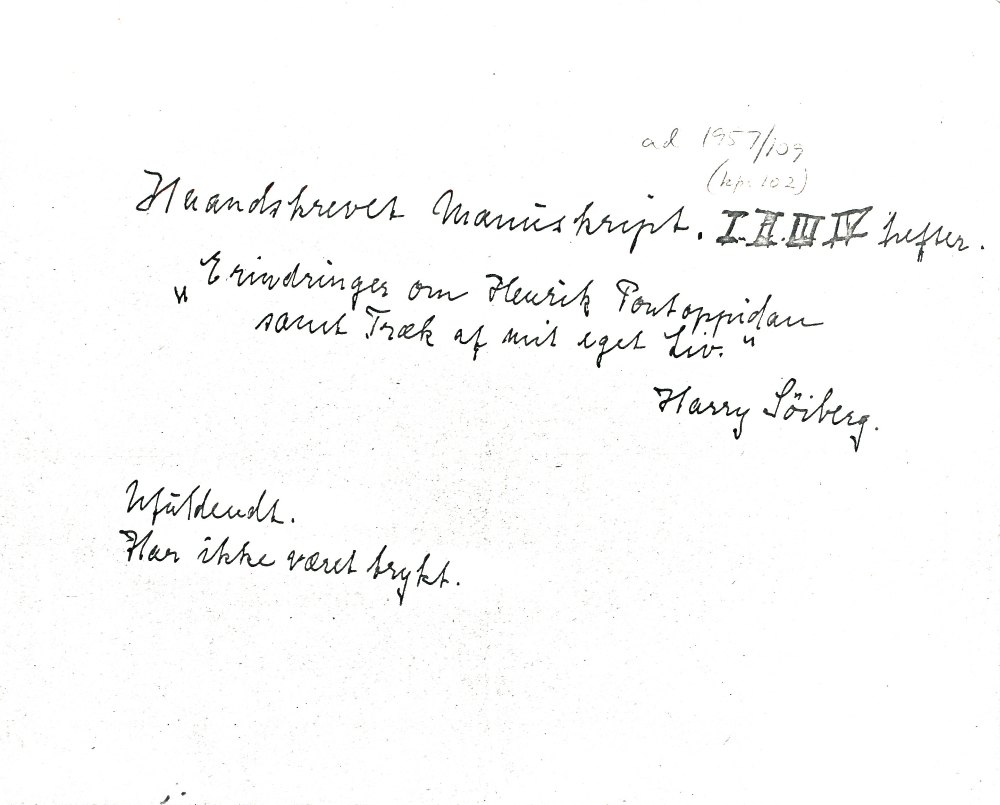 ad 1957/109
(kps. 102)
Haandskrevet Manuskript. I. II. III IV hefter.
"Erindringer om Henrik Pontoppidan
samt Træk af mit eget Liv."
Harry Söiberg.
Ufuldendt.
Har ikke været trykt.